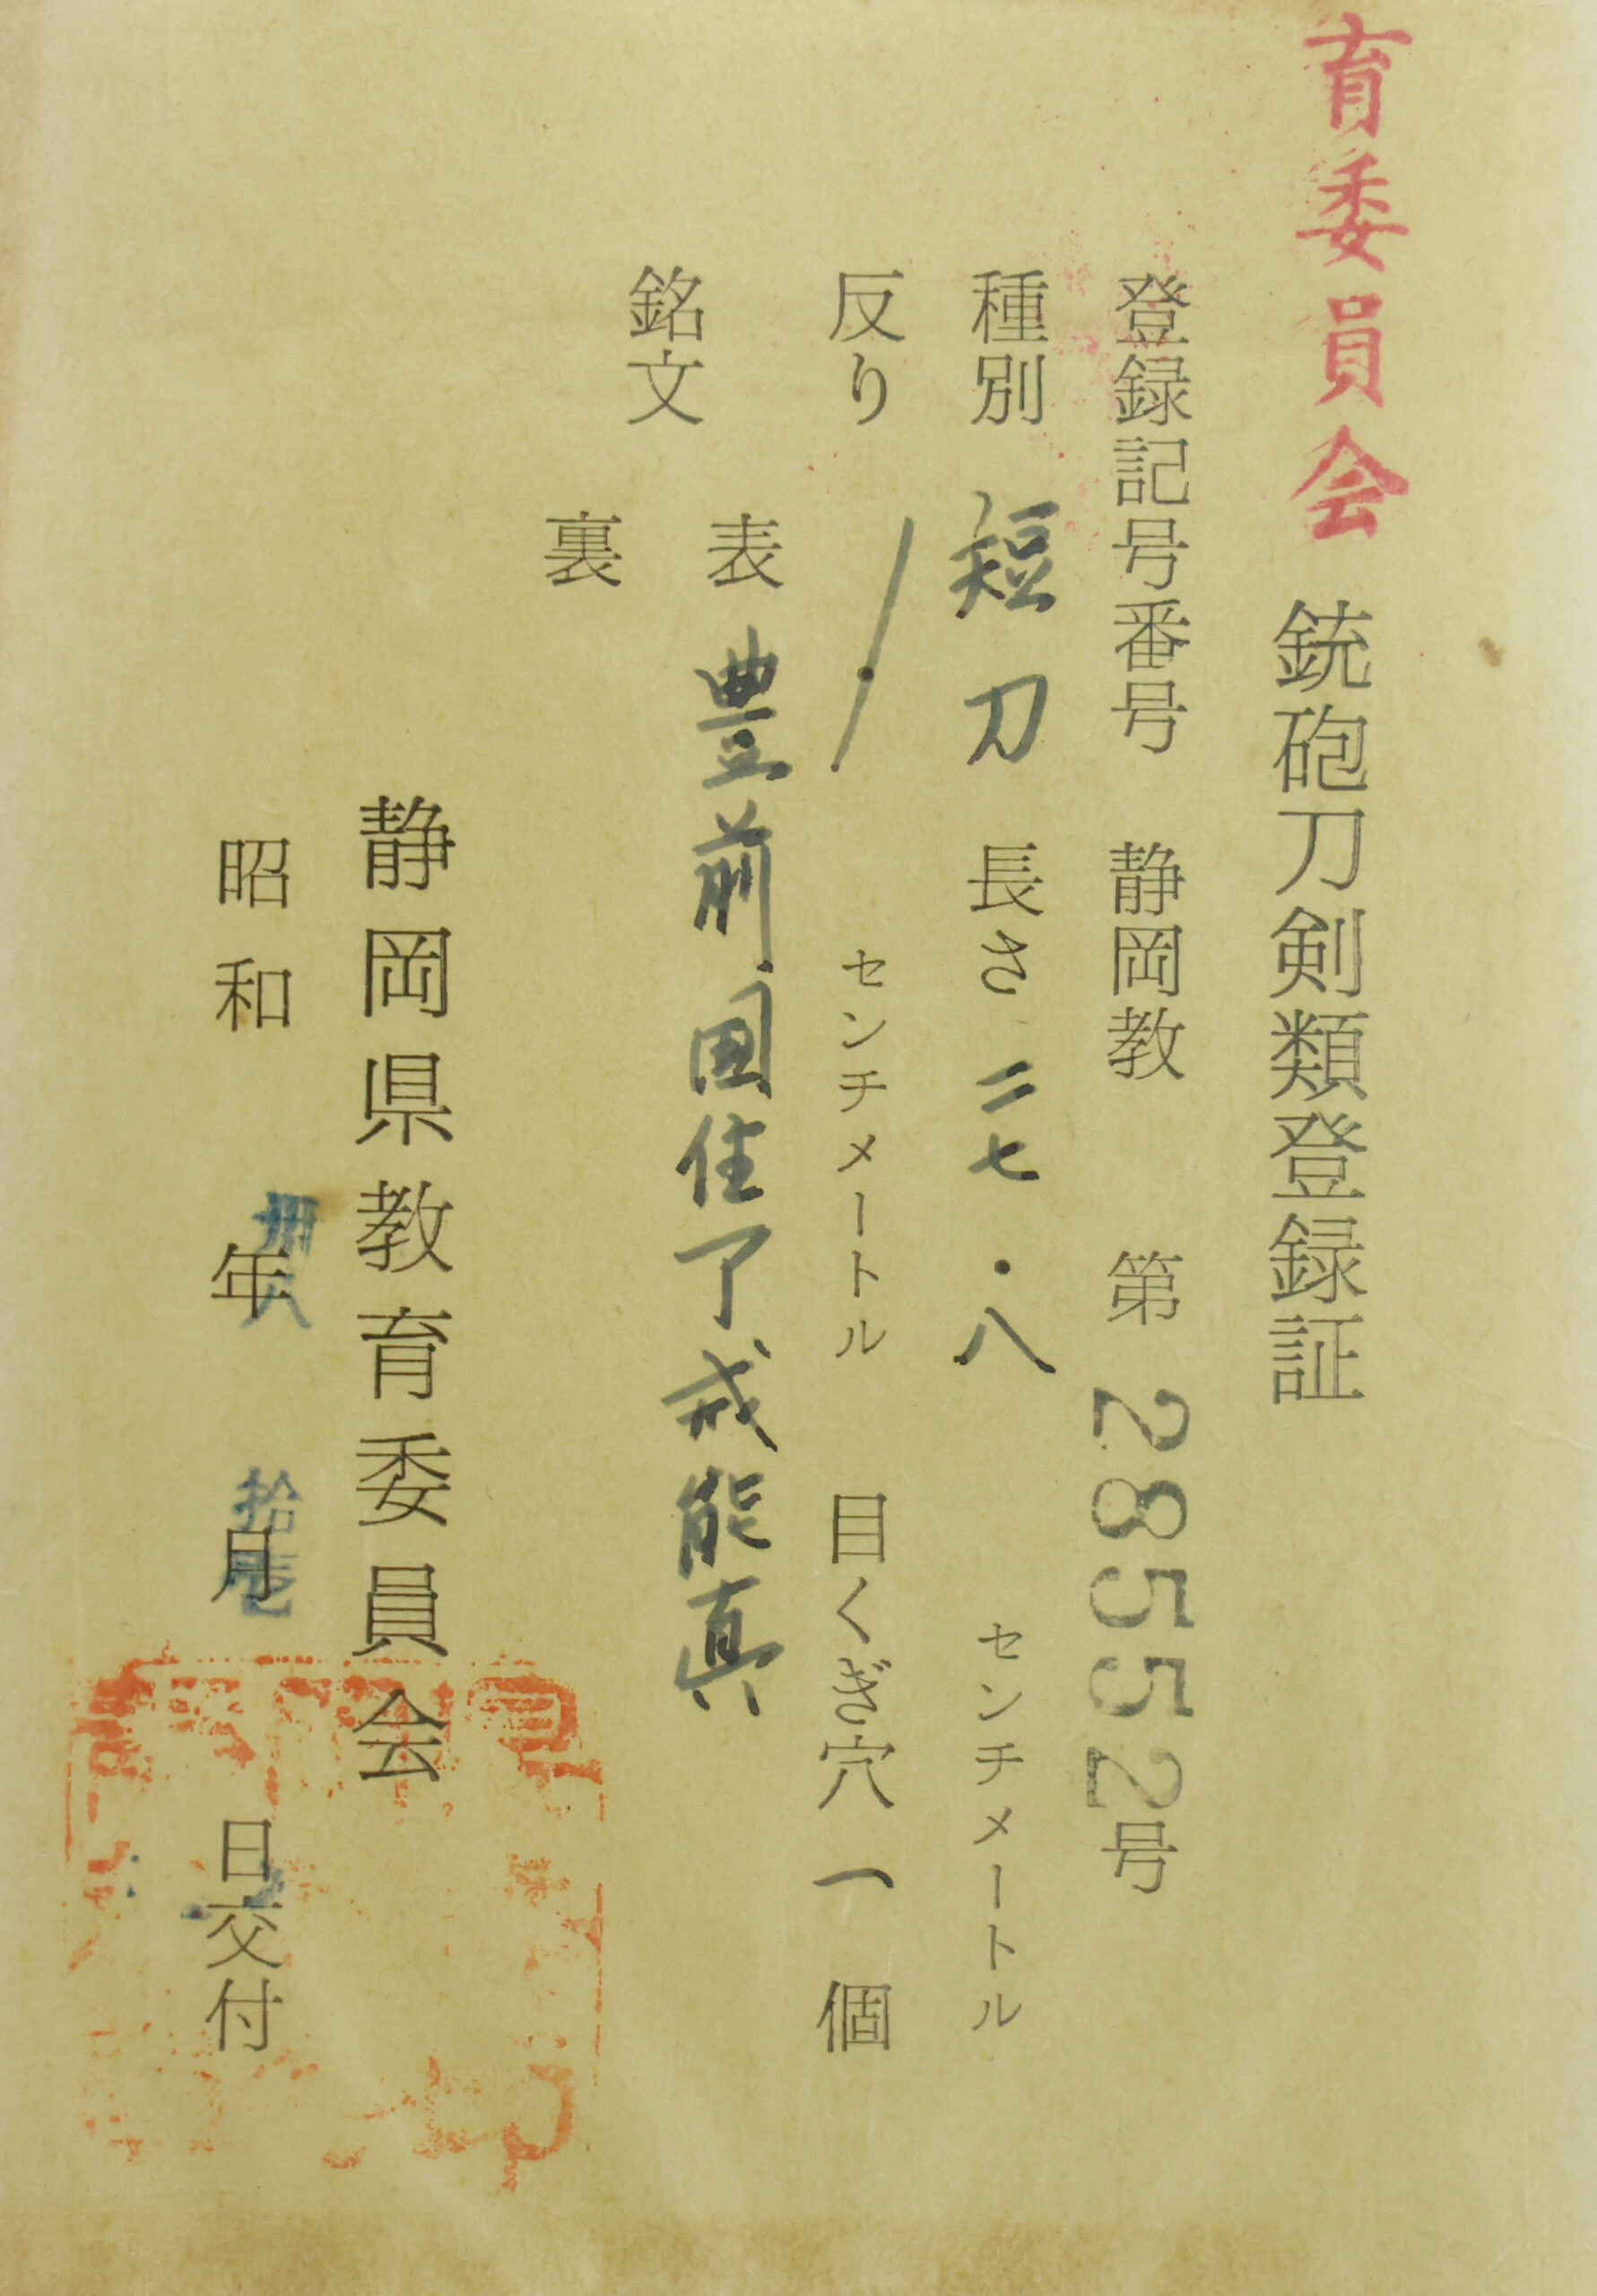 育委員会
銃砲刀剣類登録証
登録記号番号 静岡教 第28552号
種別 短刀 長さ 二七・八 センチメートル
反り センチメートル 目くぎ穴 一 個
銘文
表 豊前国住了戒能真
裏
静岡県教育委員会
昭和 卅八年 拾壱月 日交付